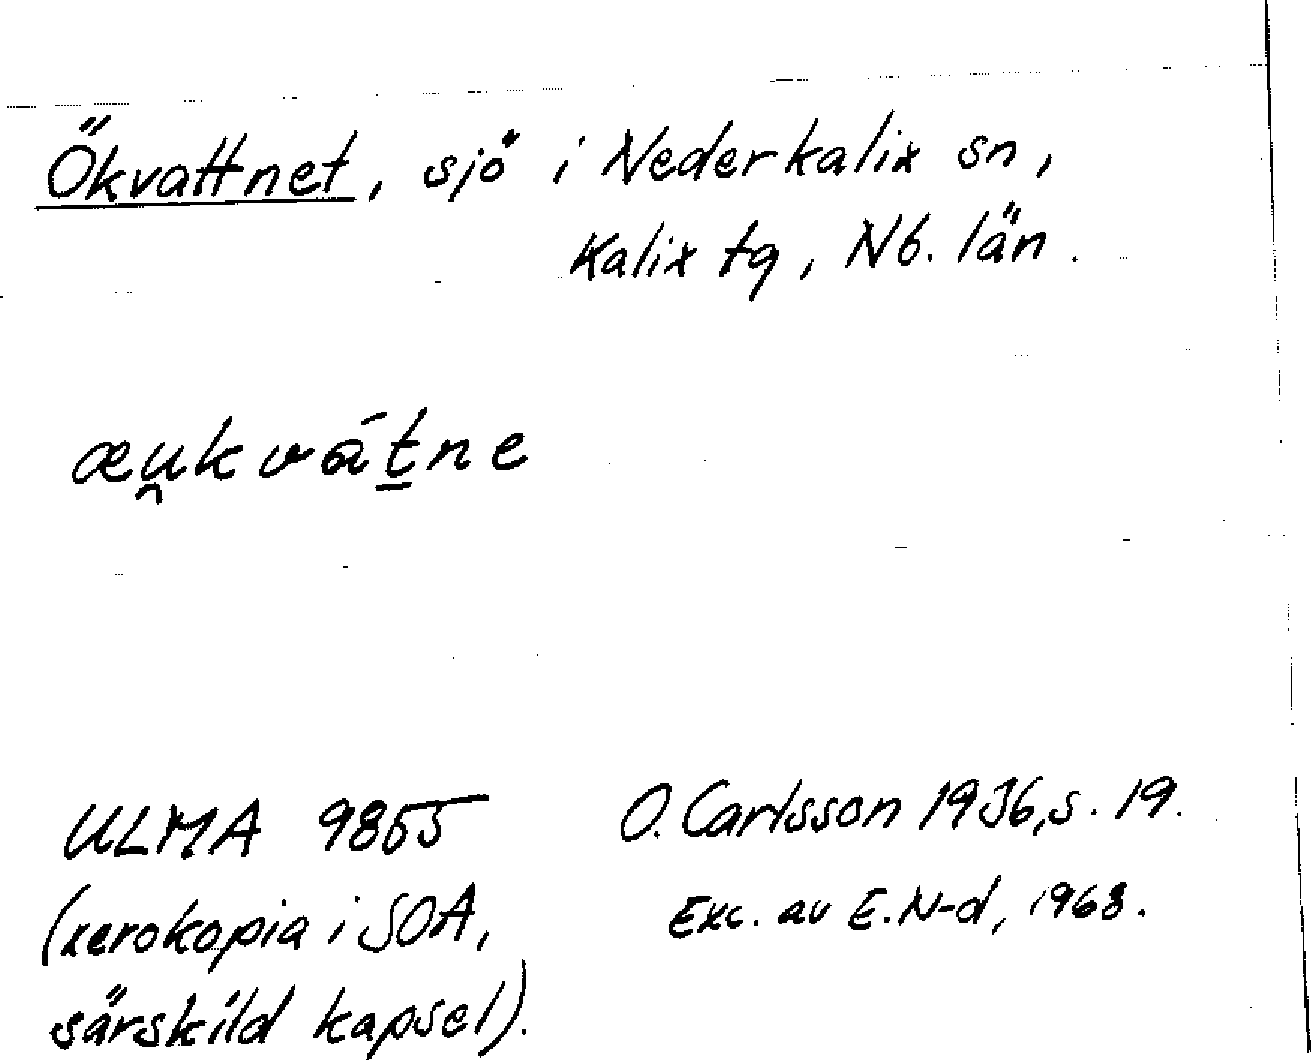 Ökvattnet, sjö i Nederkalix sn,
Kalix tg, Nb. län.
æu̯kvátne
ULMA 9855
(xerokopia i SOA,
särskild kapsel).
O. Carlsson 1936, s. 19.
Exc. av E. N-d, 1968.